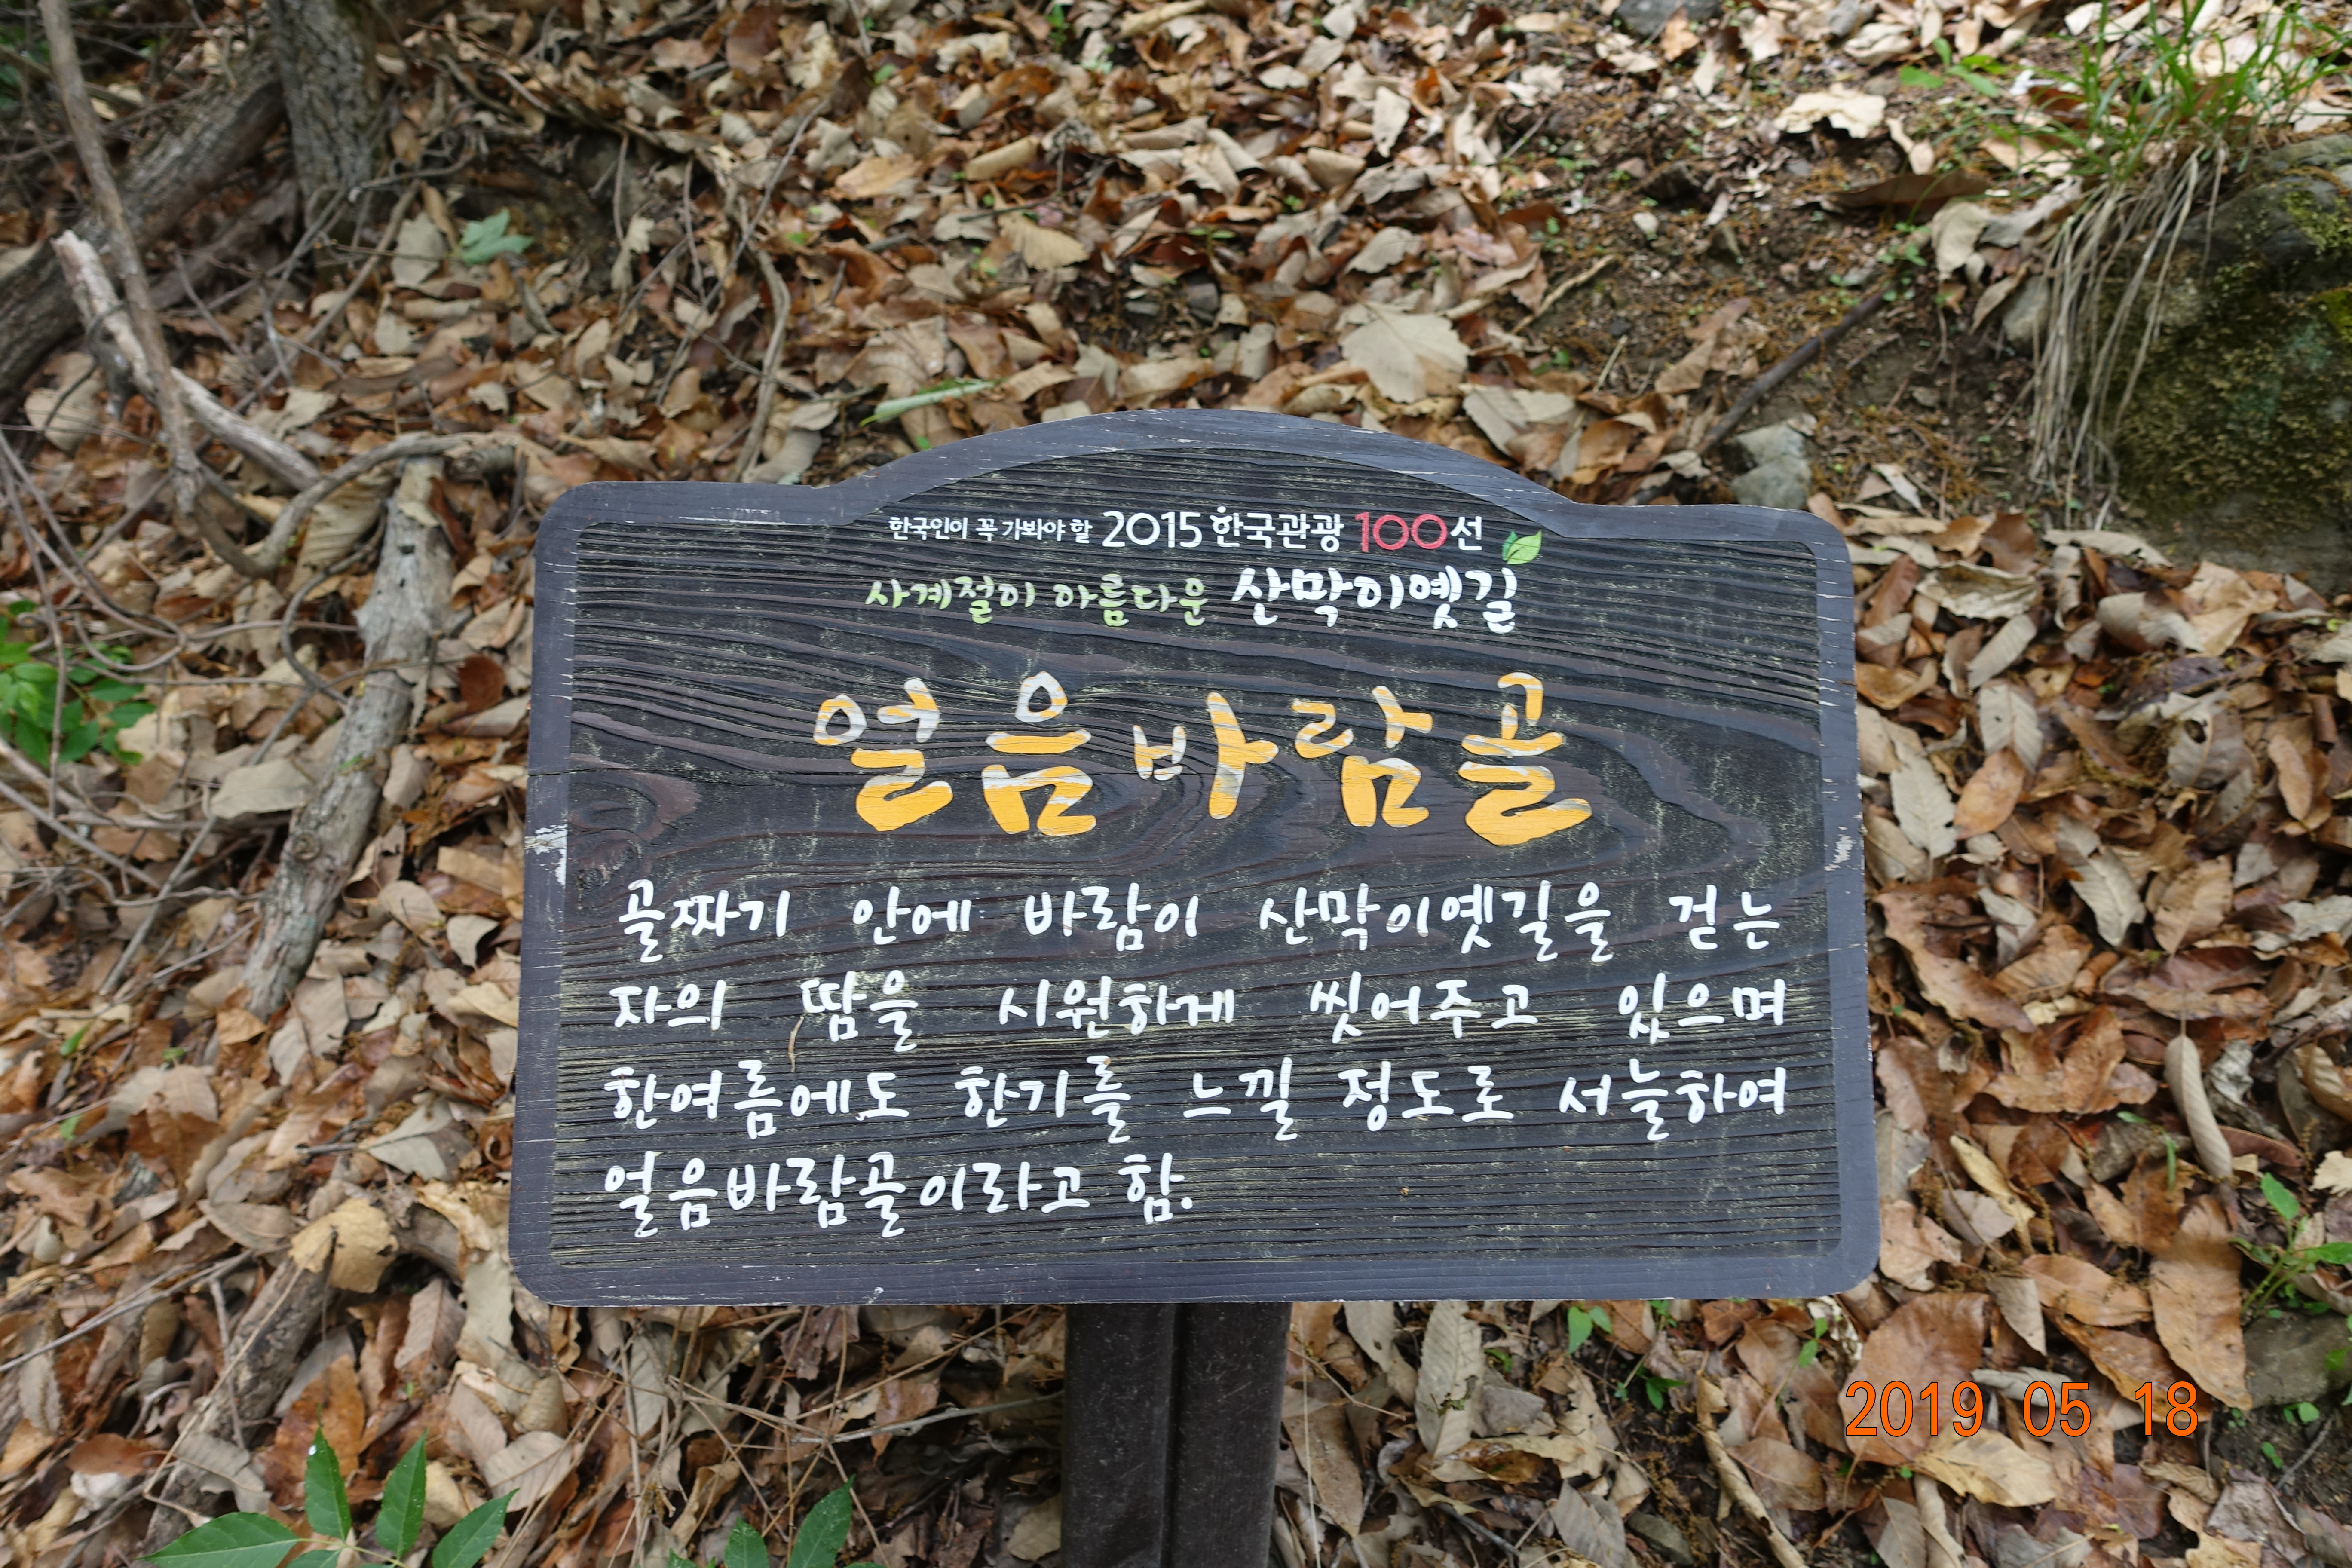 한국인이 꼭 가봐야 할 2015 한국관광 100선
사계절이 아름다운 산막이옛길
얼음바람골
골짜기 안에 바람이 산막이옛길을 걷는
자의 땀을 시원하게 씻어주고 있으며
한여름에도 한기를 느낄 정도로 서늘하여
얼음바람골이라고 함.
2019 05 18